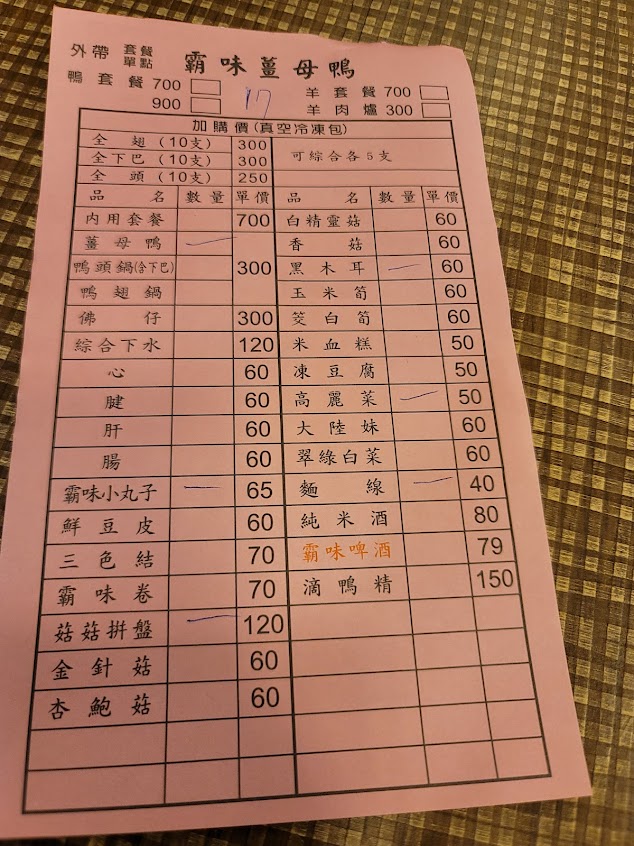 外帶 套餐 單點 霸味薑母鴨
鴨套餐 700 羊套餐 700
900 17 羊肉爐 300
加購價(真空冷凍包)
全翅(10支) 300 可綜合各5支
全下巴(10支) 300
全頭(10支) 250
品名 數量 單價 品名 數量 單價
內用套餐 700 白精靈菇 60
薑母鴨 一 香菇 60
鴨頭鍋(含下巴) 300 黑木耳 一 60
鴨翅鍋 玉米筍 60
佛仔 300 筊白筍 60
綜合下水 120 米血糕 50
心 60 凍豆腐 50
腱 60 高麗菜 一 50
肝 60 大陸妹 60
腸 60 翠綠白菜 60
霸味小丸子 一 65 麵線 一 40
鮮豆皮 60 純米酒 80
三色結 70 霸味啤酒 79
霸味卷 70 滴鴨精 150
菇菇拼盤 一 120
金針菇 60
杏鮑菇 60